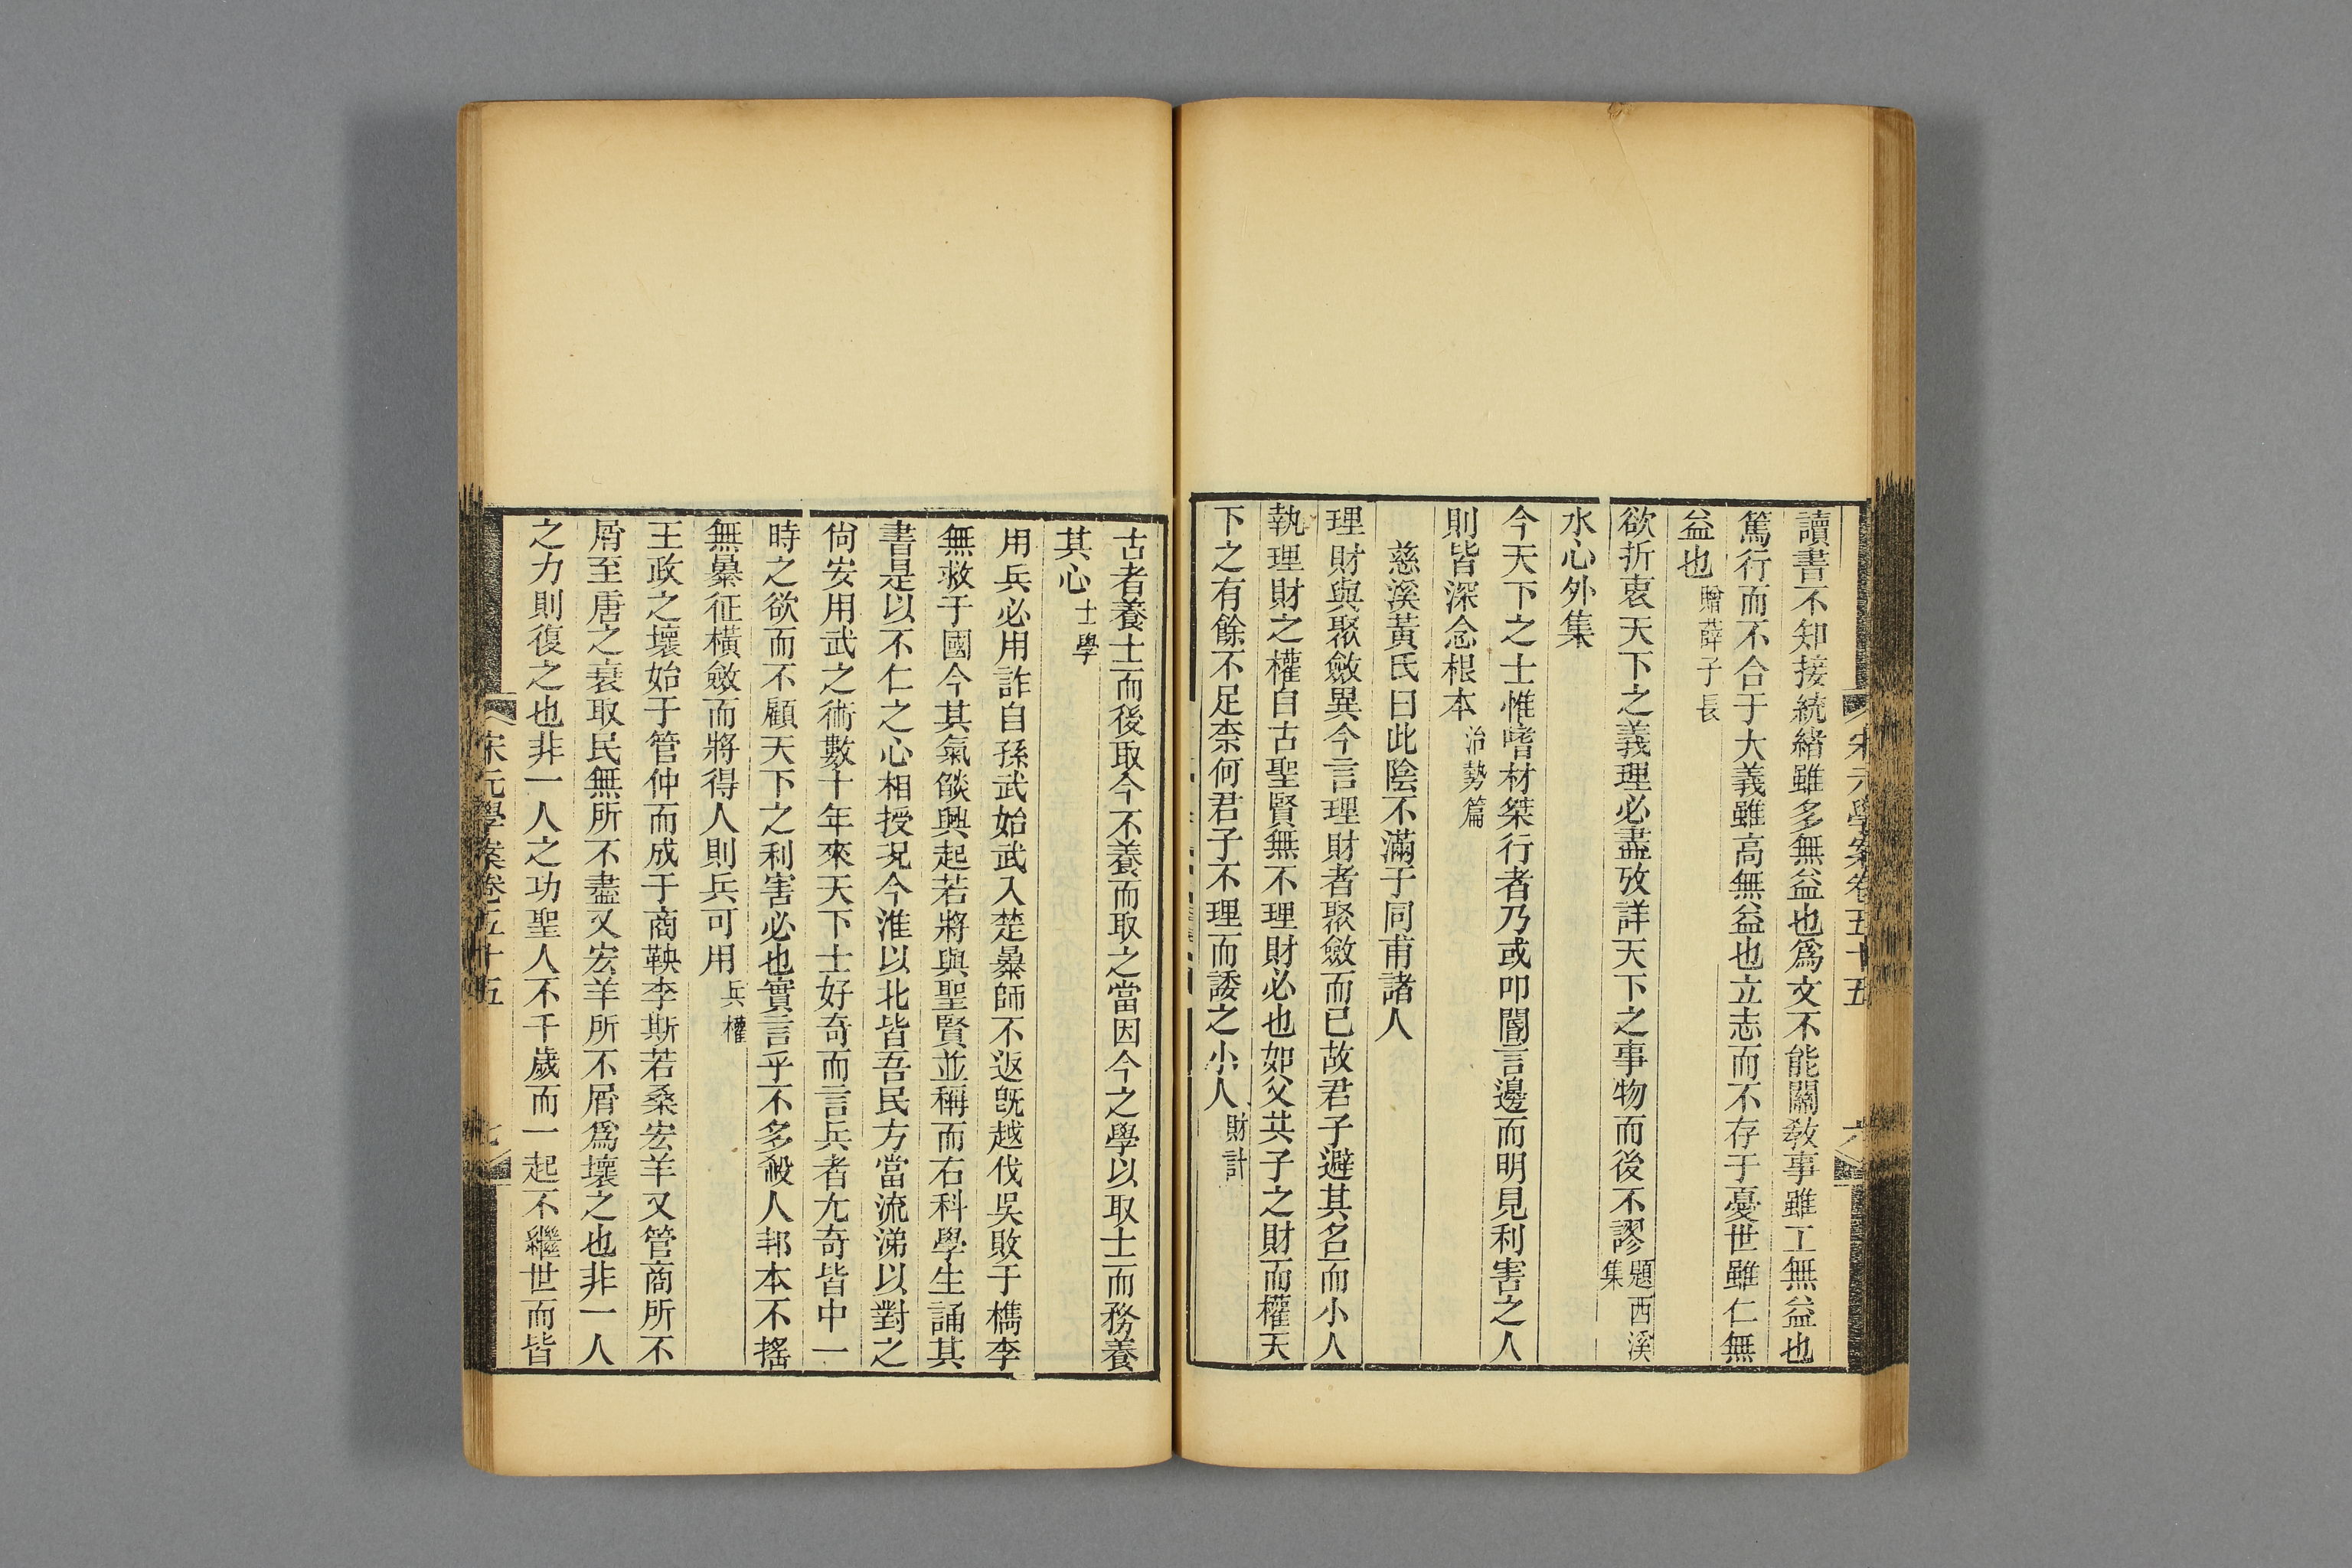 宋元學案卷五十五
六
讀書不知接統緒雖多無益也爲文不能關敎事雖工無益也
篤行而不合于大義雖高無益也立志而不存于憂世雖仁無
益也贈薛子長
欲折衷天下之義理必盡攷詳天下之事物而後不謬題西溪集
水心外集
今天下之士惟嗜材桀行者乃或叩閽言邊而明見利害之人
則皆深念根本治勢篇
慈溪黃氏曰此陰不滿于同甫諸人
理財與聚斂異今言理財者聚斂而已故君子避其名而小人
執理財之權自古聖賢無不理財必也如父共子之財而權天
下之有餘不足柰何君子不理而諉之小人財計
古者養士而後取今不養而取之當因今之學以取士而務養
其心士學
用兵必用詐自孫武始武入楚暴師不返旣越伐吳敗于檇李
無救于國今其氣燄興起若將與聖賢並稱而右科學生誦其
書是以不仁之心相授况今淮以北皆吾民方當流涕以對之
尙安用武之術數十年來天下士好奇而言兵者尤奇皆中一
時之欲而不顧天下之利害必也實言乎不多殺人邦本不搖
無暴征橫斂而將得人則兵可用兵權
王政之壞始于管仲而成于商鞅李斯若桑宏羊又管商所不
屑至唐之衰取民無所不盡又宏羊所不屑爲壞之也非一人
之力則復之也非一人之功聖人不千歲而一起不繼世而皆
宋元學案卷五十五
七